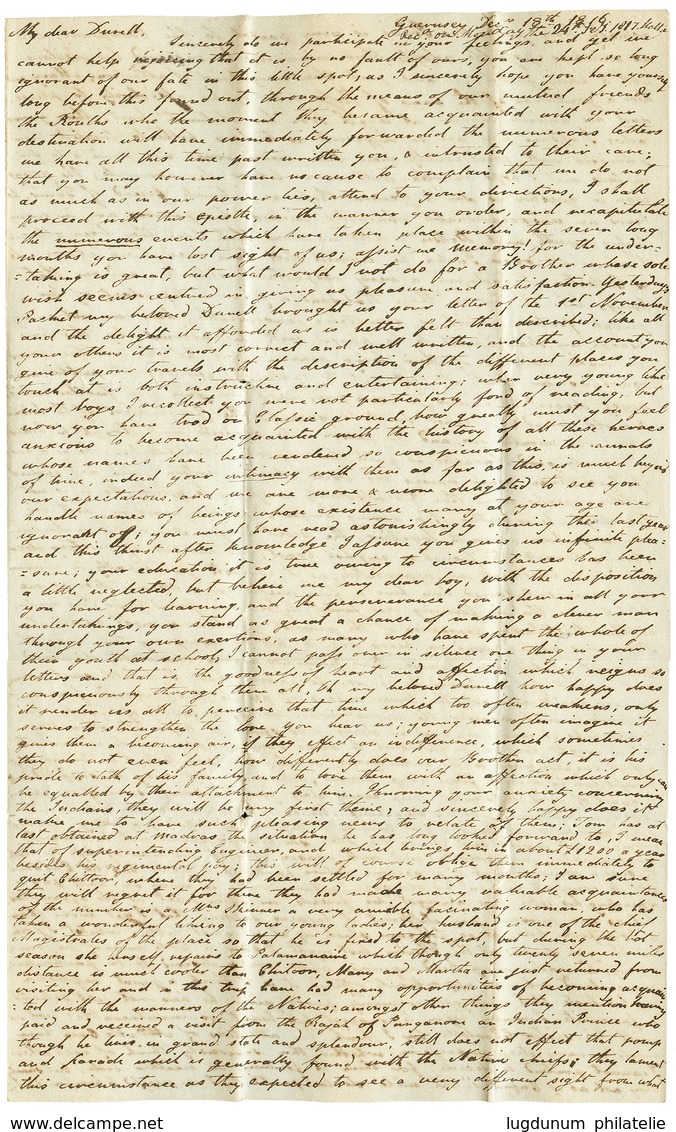 My dear Durell, Guernsey Decr 18th 1818
Sincerely do we participate in your feelings, and yet we
cannot help that it is by no fault of ours, you are kept so long
ignorant of our fate in this little spot, as I sincerely hope you have yourself
long before this found out, through the means of our mutual friends
the Rouths who the moment they became acquainted with your
destination will have immediately forwarded the numerous letters
we have all this time past written you, & intrusted to their care;
that you may however have no cause to complain that we do not
as much as in our power lies, attend to your directions, I shall
proceed with this Epistle, in the manner you order, and recapitulate
the numerous events which have taken place within the seven long
months you have lost sight of us; assist me Memory! for the under-
-taking is great, but what would I not do for a Brother whose sole
wish seems centred in giving us pleasure and satisfaction. Yesterdays
Packet my beloved Durell brought us your letter of the 1st November
and the delight it afforded us is better felt than described; like all
your others it is most correct and well written, and the account you
give of your travels with the description of the different places you
touch at is both instructive and entertaining; when very young like
most boys I recollect you were not particularly fond of reading, but
now you have trod on Classic ground, how greatly must you feel
anxious to become acquainted with the history of all these heroes
whose names have been rendered so conspicuous in the annals
of time, indeed your intimacy with them as far as this, is much beyond
our expectations, and we are more & more delighted to see you
handle names of beings whose existence many at your age are
ignorant of; you must have read astonishingly during the last year
and this thirst after knowledge I assure you gives us infinite plea-
-sure; your education it is true owing to circumstances has been
a little neglected, but believe me my dear boy, with the disposition
you have for learning, and the perseverance you shew in all your
undertakings, you stand as great a chance of making a clever man
through your own exertions, as many who have spent the whole of
their youth at school; I cannot pass over in silence one thing in your
letters and that is, the goodness of heart and affection which reigns so
conspicuously through them all, Oh my beloved Durell how happy does
it render us all to perceive that time which too often weakens, only
serves to strengthen the love you bear us; young men often imagine it
gives them a becoming air, if they effect an indifference, which sometimes
they do not even feel, how differently does our Brother act, it is his
pride to talk of his family and to love them with an affection which only can
be equalled by their attachment to him. Knowing your anxiety concerning
the Indians, they will be my first theme, and sincerely happy does it
make me to have such pleasing news to relate of them; Tom has at
last obtained at Madras the situation he has long looked forward to, I mean
that of superintending Engineer, and which brings him in about £1200 a year
besides his regimental pay; this will of course oblige them immediately to
quit Chittoor, where they had been settled for many months; I am sure
they will regret it for there they had made many valuable acquaintances
of the number is a Mrs Skinner a very amiable fascinating woman, who has
taken a wonderful liking to our young ladies; her husband is one of the chief
Magistrates of the place so that he is fixed to the spot, but during the hot
season she herself repairs to Palamanaire which though only twenty seven miles
distance is much cooler than Chitoor, Mary and Martha are just returned from
visiting her and in this trip have had many opportunities of becoming acquain-
-ted with the manners of the Natives; amongst other things they mention having
paid and received a visit from the Rajah of Punganoor an Indian Prince who
though he lives in grand state and splendour, still does not effect that pomp
and parade which is generally found with the Native chiefs; they lament
this circumstance as they expected to see a very different sight from what
www.delcampe.net lugdunum philatelie